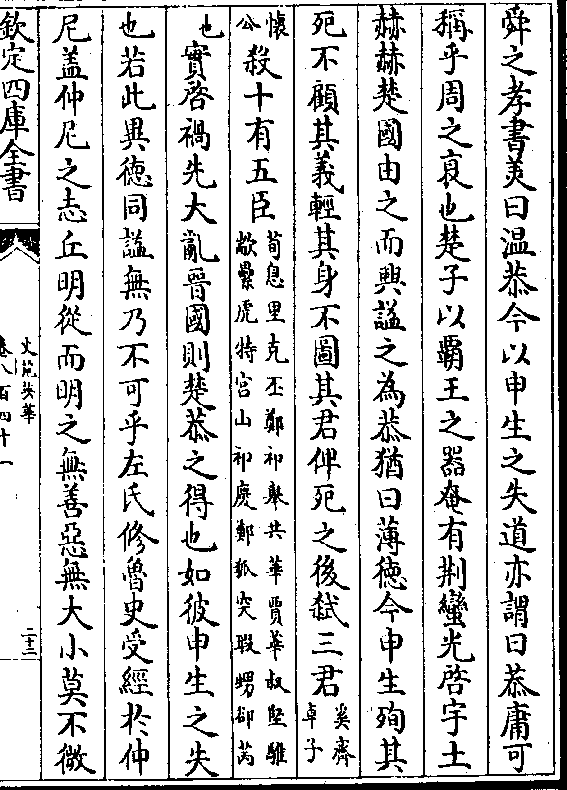 舜之孝書美曰温恭今以申生之失道亦謂曰恭庸可
稱乎周之衰也楚子以霸王之器奄有荆蠻光啓宇土
赫赫楚國由之而興謚之為恭猶曰薄徳今申生殉其
死不顧其義輕其身不圖其君俾死之後弑三君奚齊卓子
懷公殺十有五臣荀息里克丕鄭祁舉共華賈華叔堅騅歂纍虎特宫山祁慶鄭狐突瑕甥郤芮
也實啓禍先大亂晉國則楚恭之得也如彼申生之失
也若此異徳同謚無乃不可乎左氏修魯史受經於仲
尼盖仲尼之志丘明從而明之無善惡無大小莫不微
欽定四庫全書
文苑英華
卷八百四十一
二十三